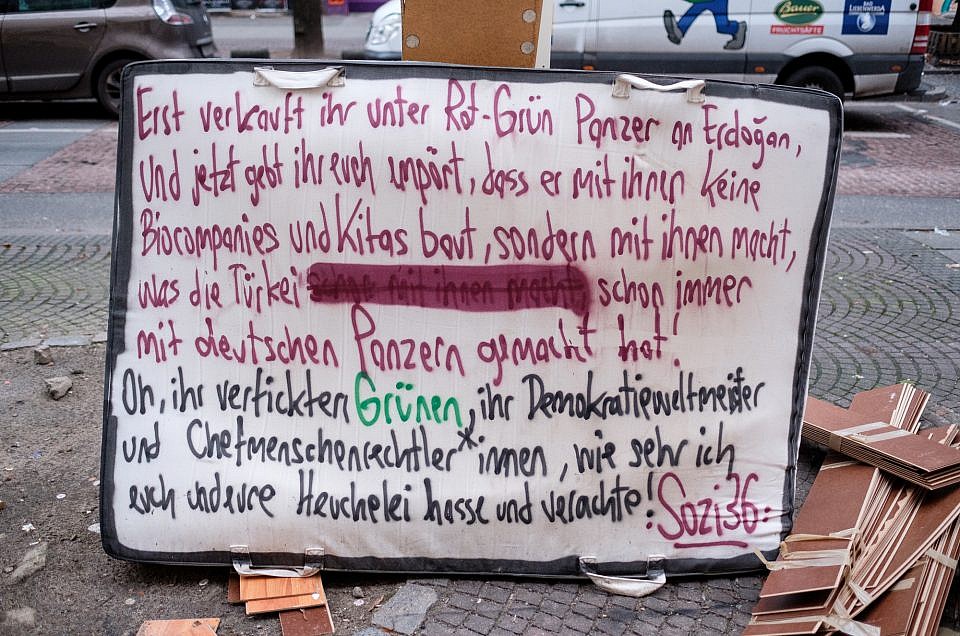 Bauer
FRUCHTSÄFTE
BAD
LIEBENWERDA
Erst verkauft ihr unter Rot-Grün Panzer an Erdoğan,
Und jetzt gebt ihr euch empört, dass er mit ihnen keine
Biocompanies und Kitas baut, sondern mit ihnen macht,
was die Türkei schon immer
mit deutschen Panzern gemacht hat!
Oh, ihr verfickten Grünen, ihr Demokratieweltmeister
und Chefmenschenrechtler*innen, wie sehr ich
euch und eure Heuchelei hasse und verachte!
:Sozi36: